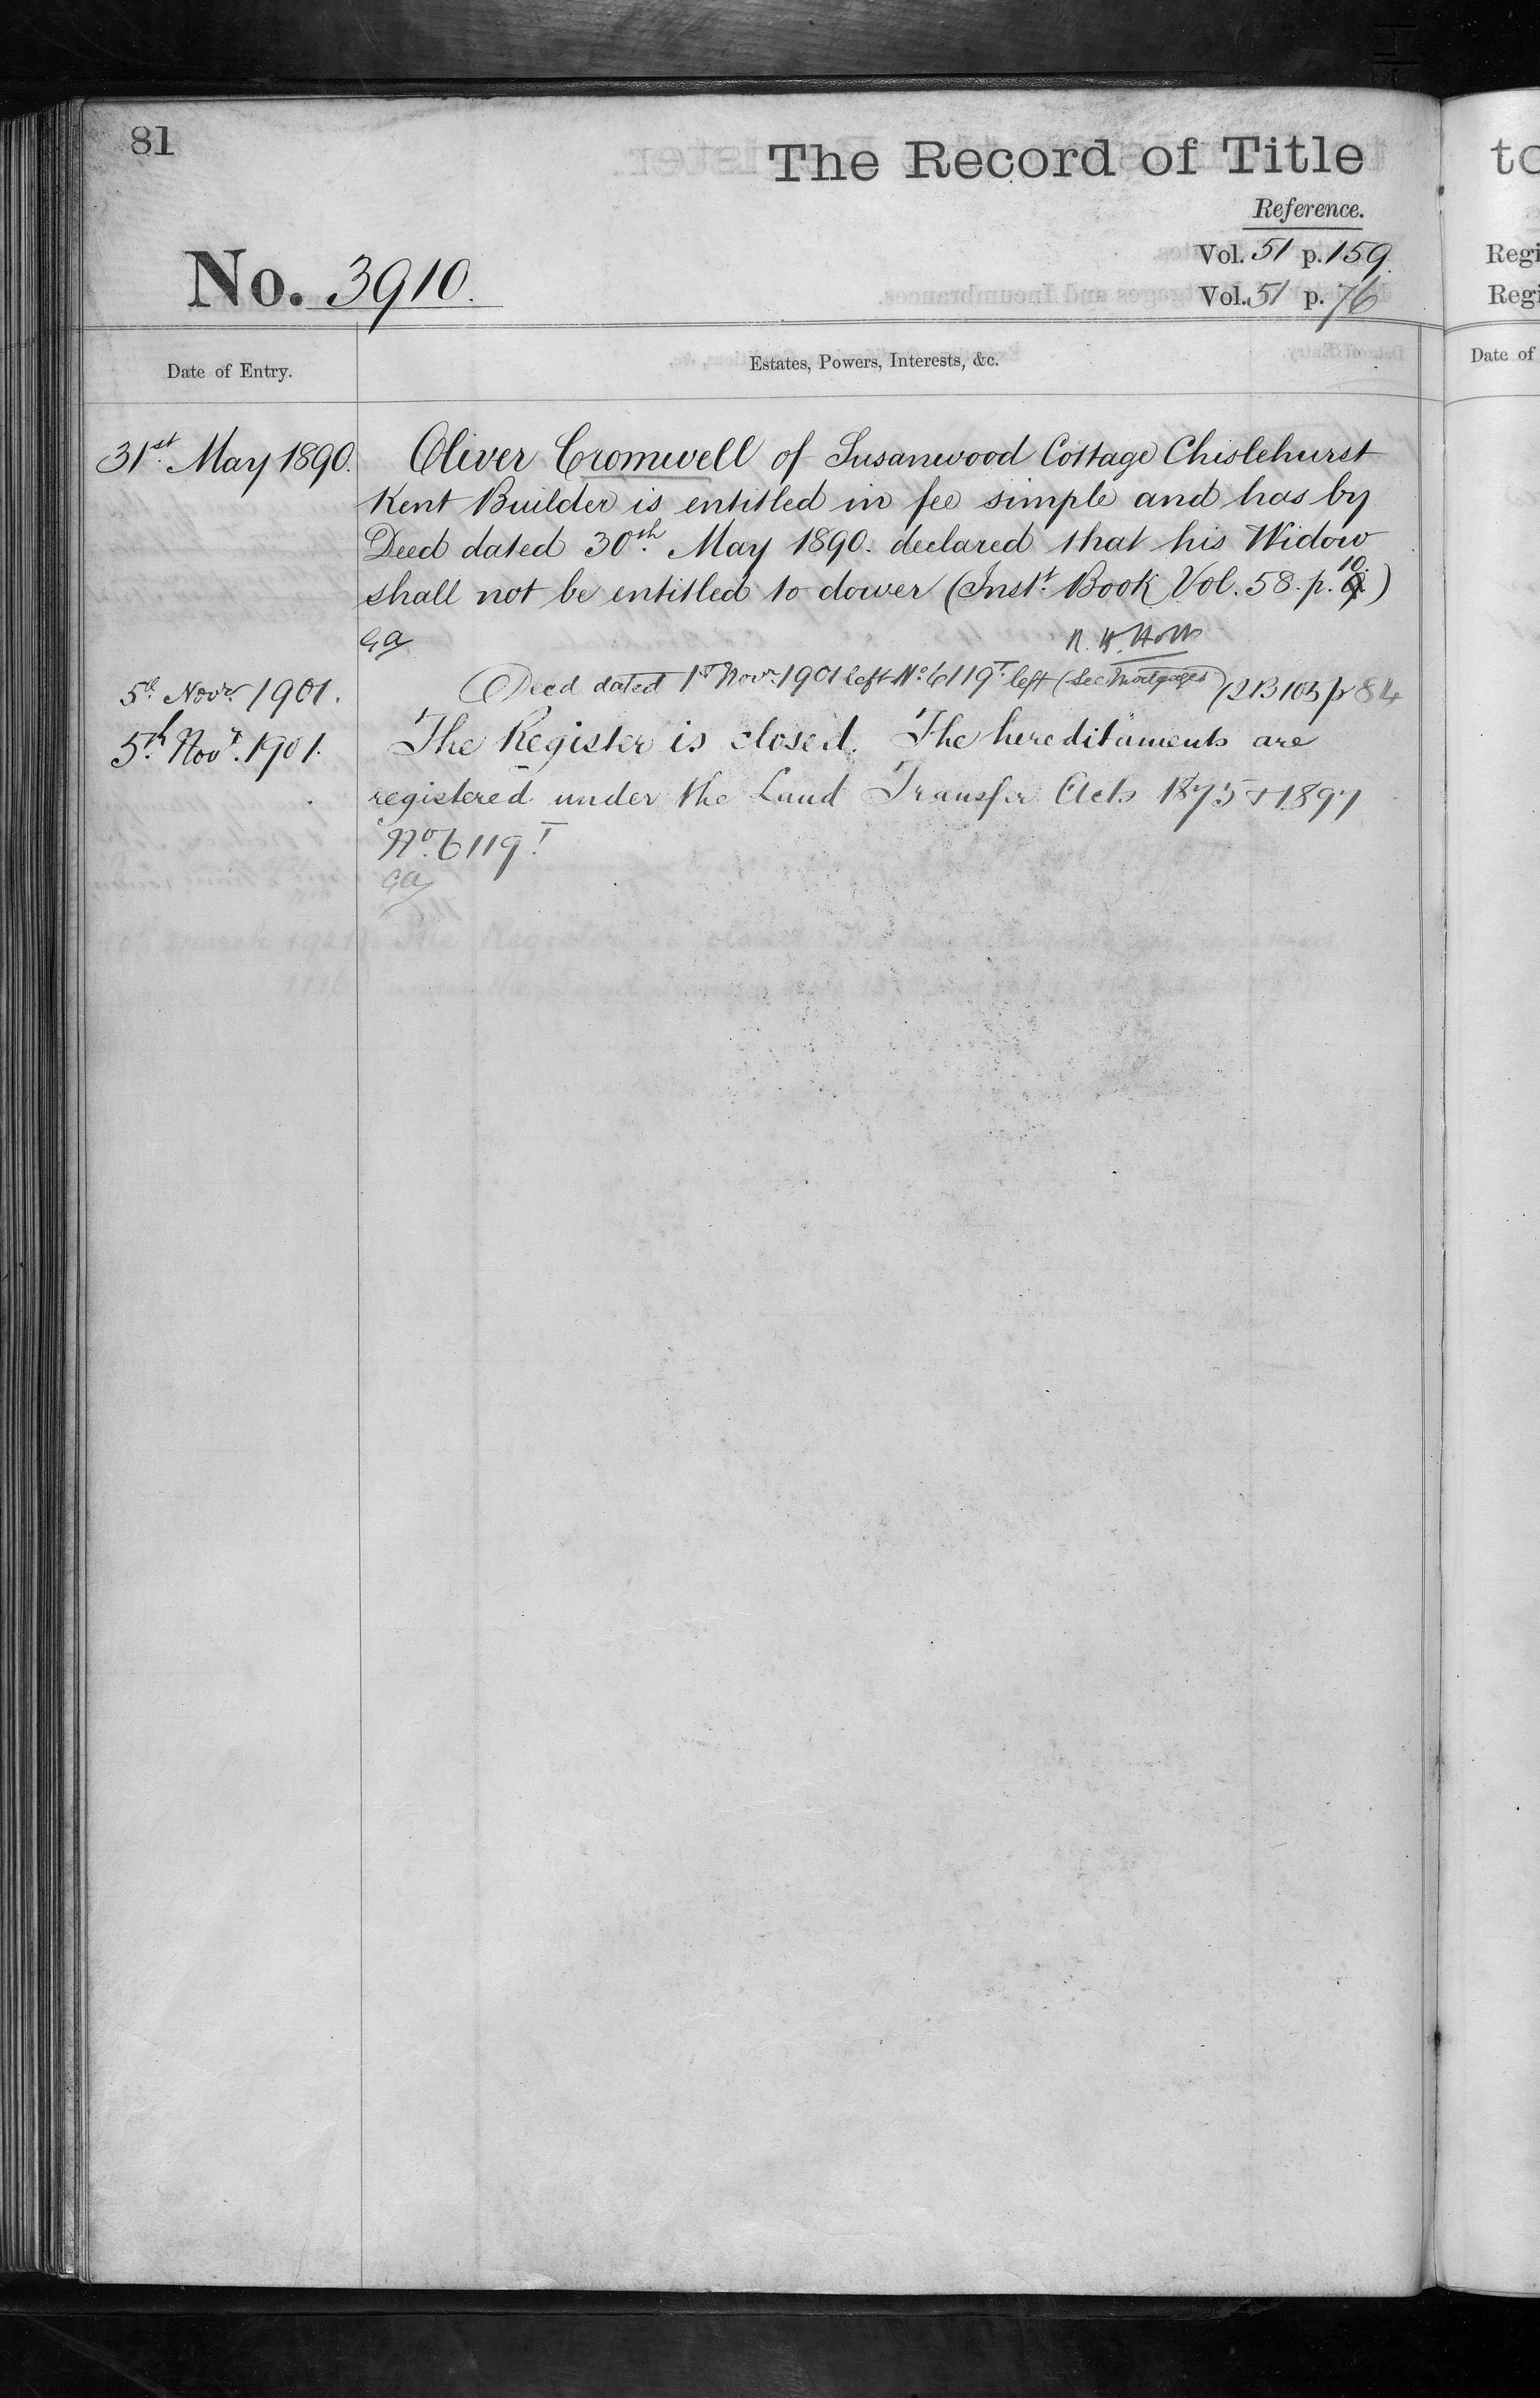 81
The Record of Title
Reference.
Vol. 51 p. 159.
No. 3910.
Vol. 51 p. 76
Date of Entry.
Estates, Powers, Interests, &c.
31st. May 1890.
Oliver Cromwell of Susanwood Cottage Chislehurst
Kent Builder is entitled in fee simple and has by
Deed dated 30th. May 1890. declared that his Widow
shall not be entitled to dower (Inst. Book Vol. 58. p. 10.)
GA
R. W. Holt
5th Novr. 1901.
Deed dated 1st Novr. 1901 left No. 6119T left (See Mortgages) p 84
5th. Novr. 1901.
The Register is closed. The hereditaments are
registered under the Land Transfer Acts 1875 & 1897
No. 6119T
GA
to
Regi
Regi
Date of